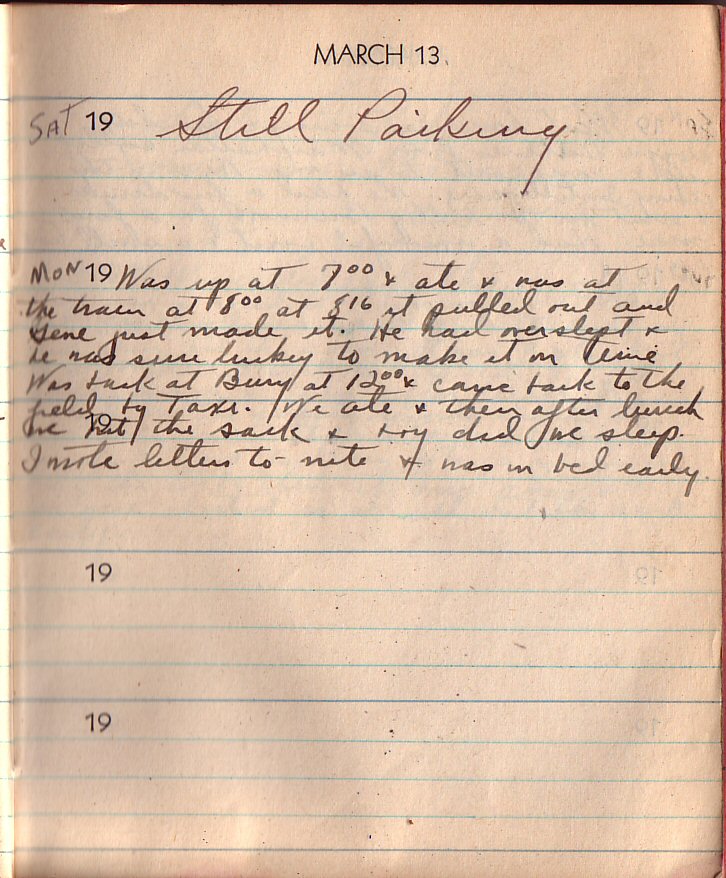 MARCH 13
SAT 19 Still Packing
MON 19 Was up at 7⁰⁰ & ate & was at
the train at 8⁰⁰ at 8¹⁶ it pulled out and
Gene just made it. He had overslept &
he was sure lucky to make it on time
Was back at Bury at 12⁰⁰ & came back to the
field by Taxi. We ate & then after lunch
19
we hit the sack & boy did we sleep.
I wrote letters to-nite & was in bed early.
19
19